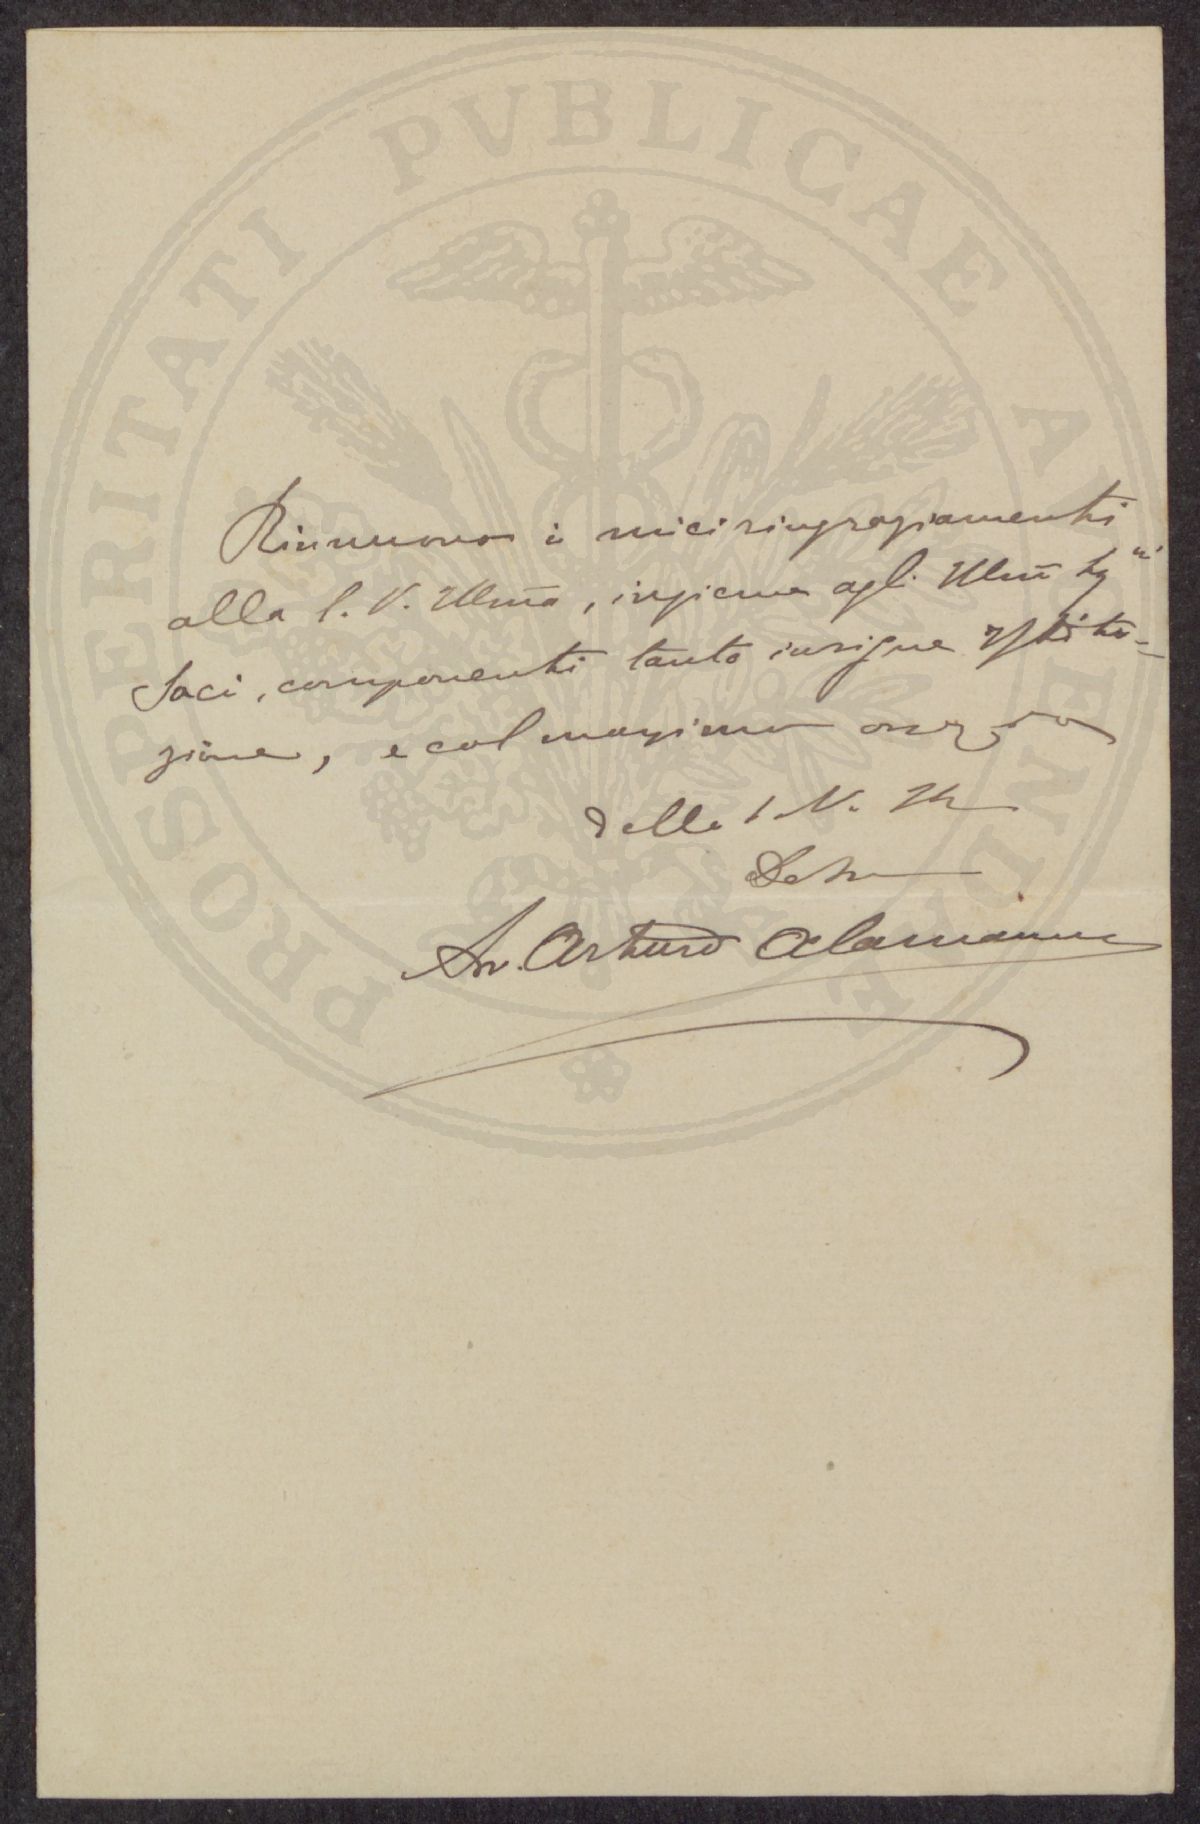 PROSPERITATI PVBLICAE AVGENDAE
Rinnuovo i miei ringraziamenti
alla S. V. Illma, insieme agli Illmi Sigri
Soci, componenti tanto insigne Istitu-
zione, e col massimo ossequio
della S. V. Ill
Devmo
Av. Arturo Alamanni